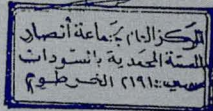 المركز العام لجماعة أنصار
السنة المحمدية بالسودان
ص.ب: ٢١٩١ الخرطوم